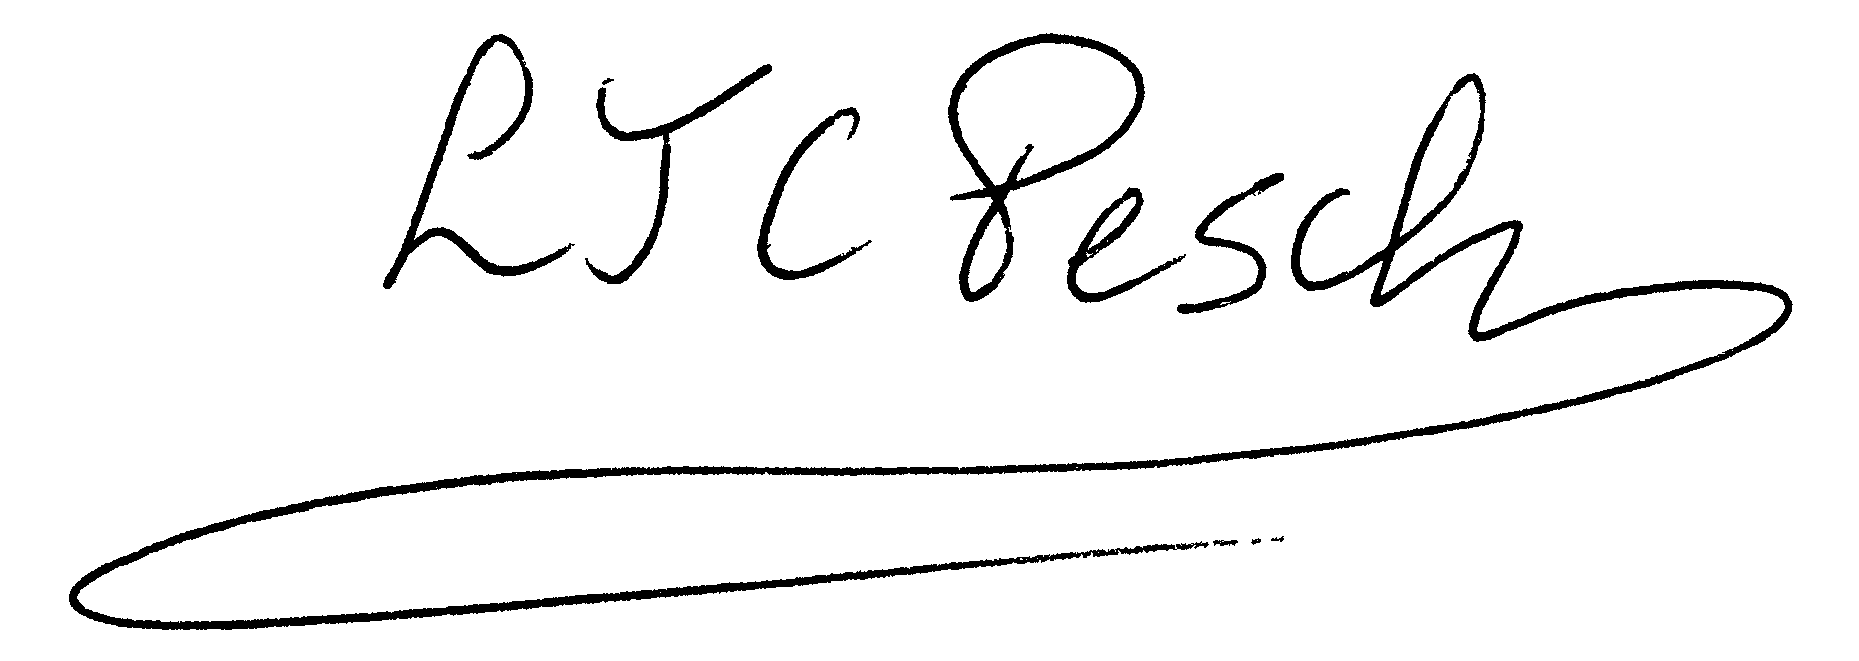 LJC Pesch